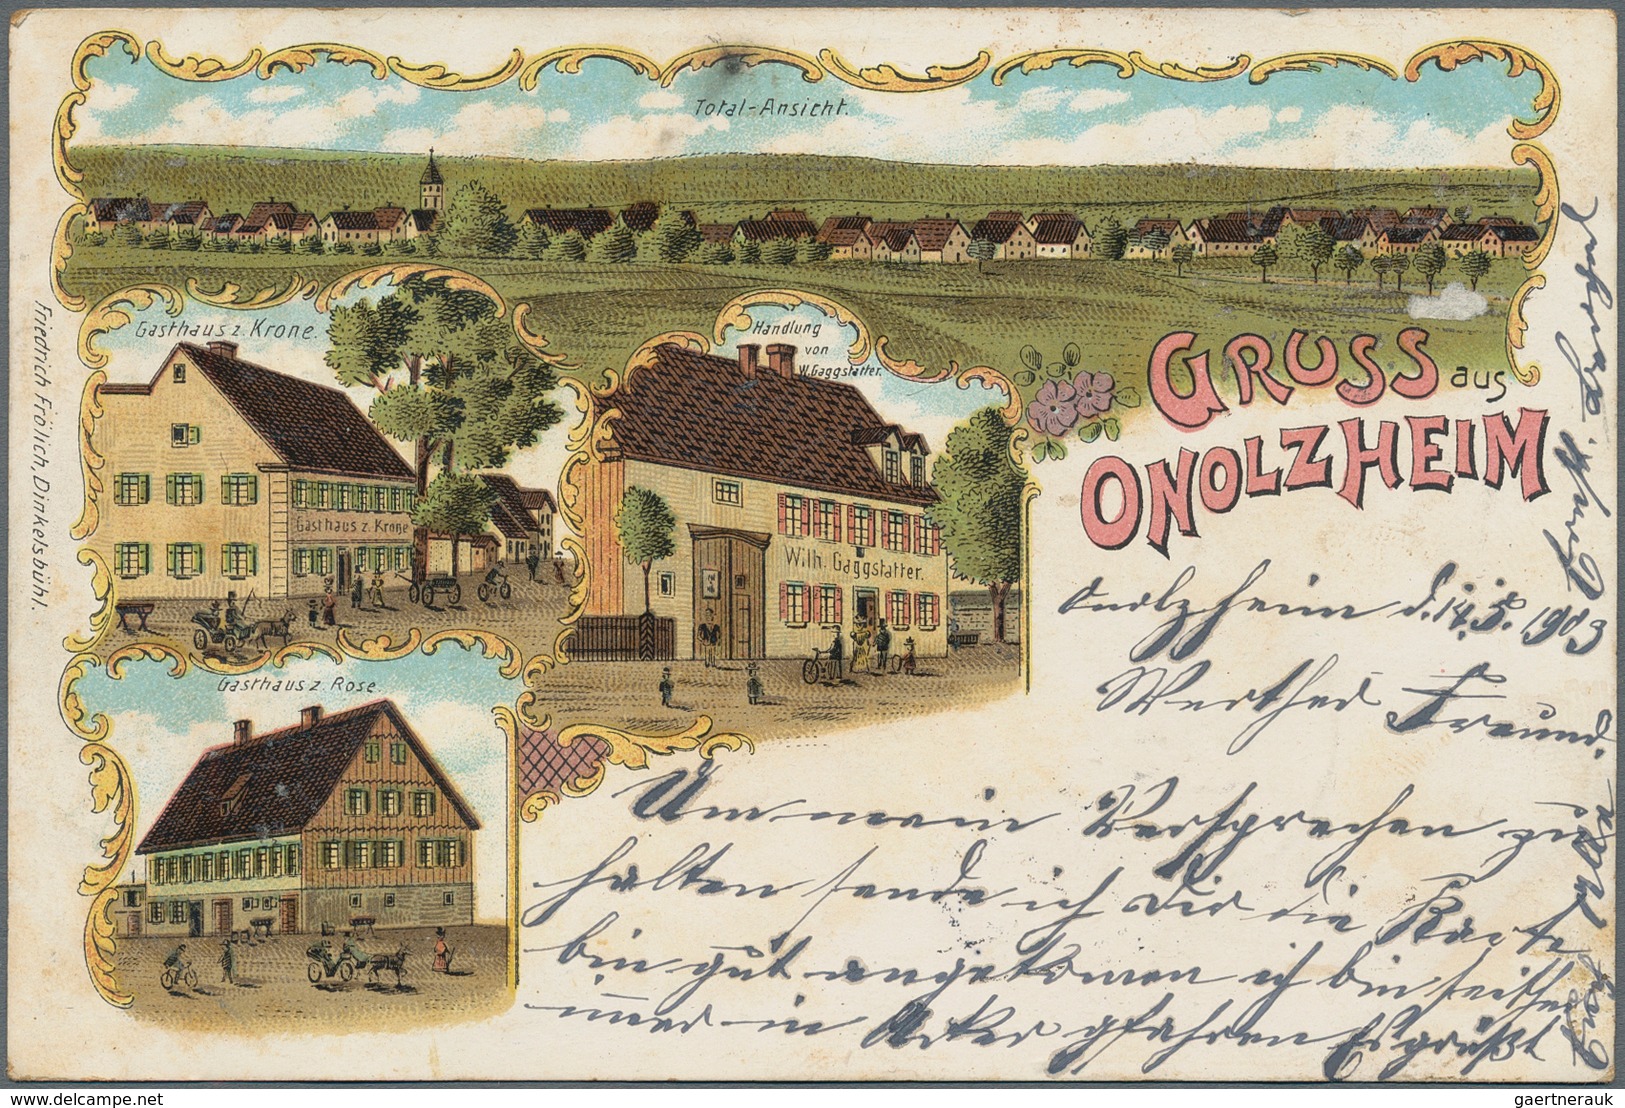 Total-Ansicht.
Gasthaus z. Krone.
Gasthaus z. Krone
Handlung
von
W. Gaggstatter.
Wilh. Gaggstatter.
Gasthaus z. Rose
GRUSS aus
ONOLZHEIM
Friedrich Frölich, Dinkelsbühl.
Onolzheim d. 14. 5. 1903
Werther Freund.
Um mein Versprechen zu
halten sende ich Dir die Karte
bin gut angekomen ich bin seither
immer in Acker gfahren Es grüßt
delcampe.net
gaertnerauk